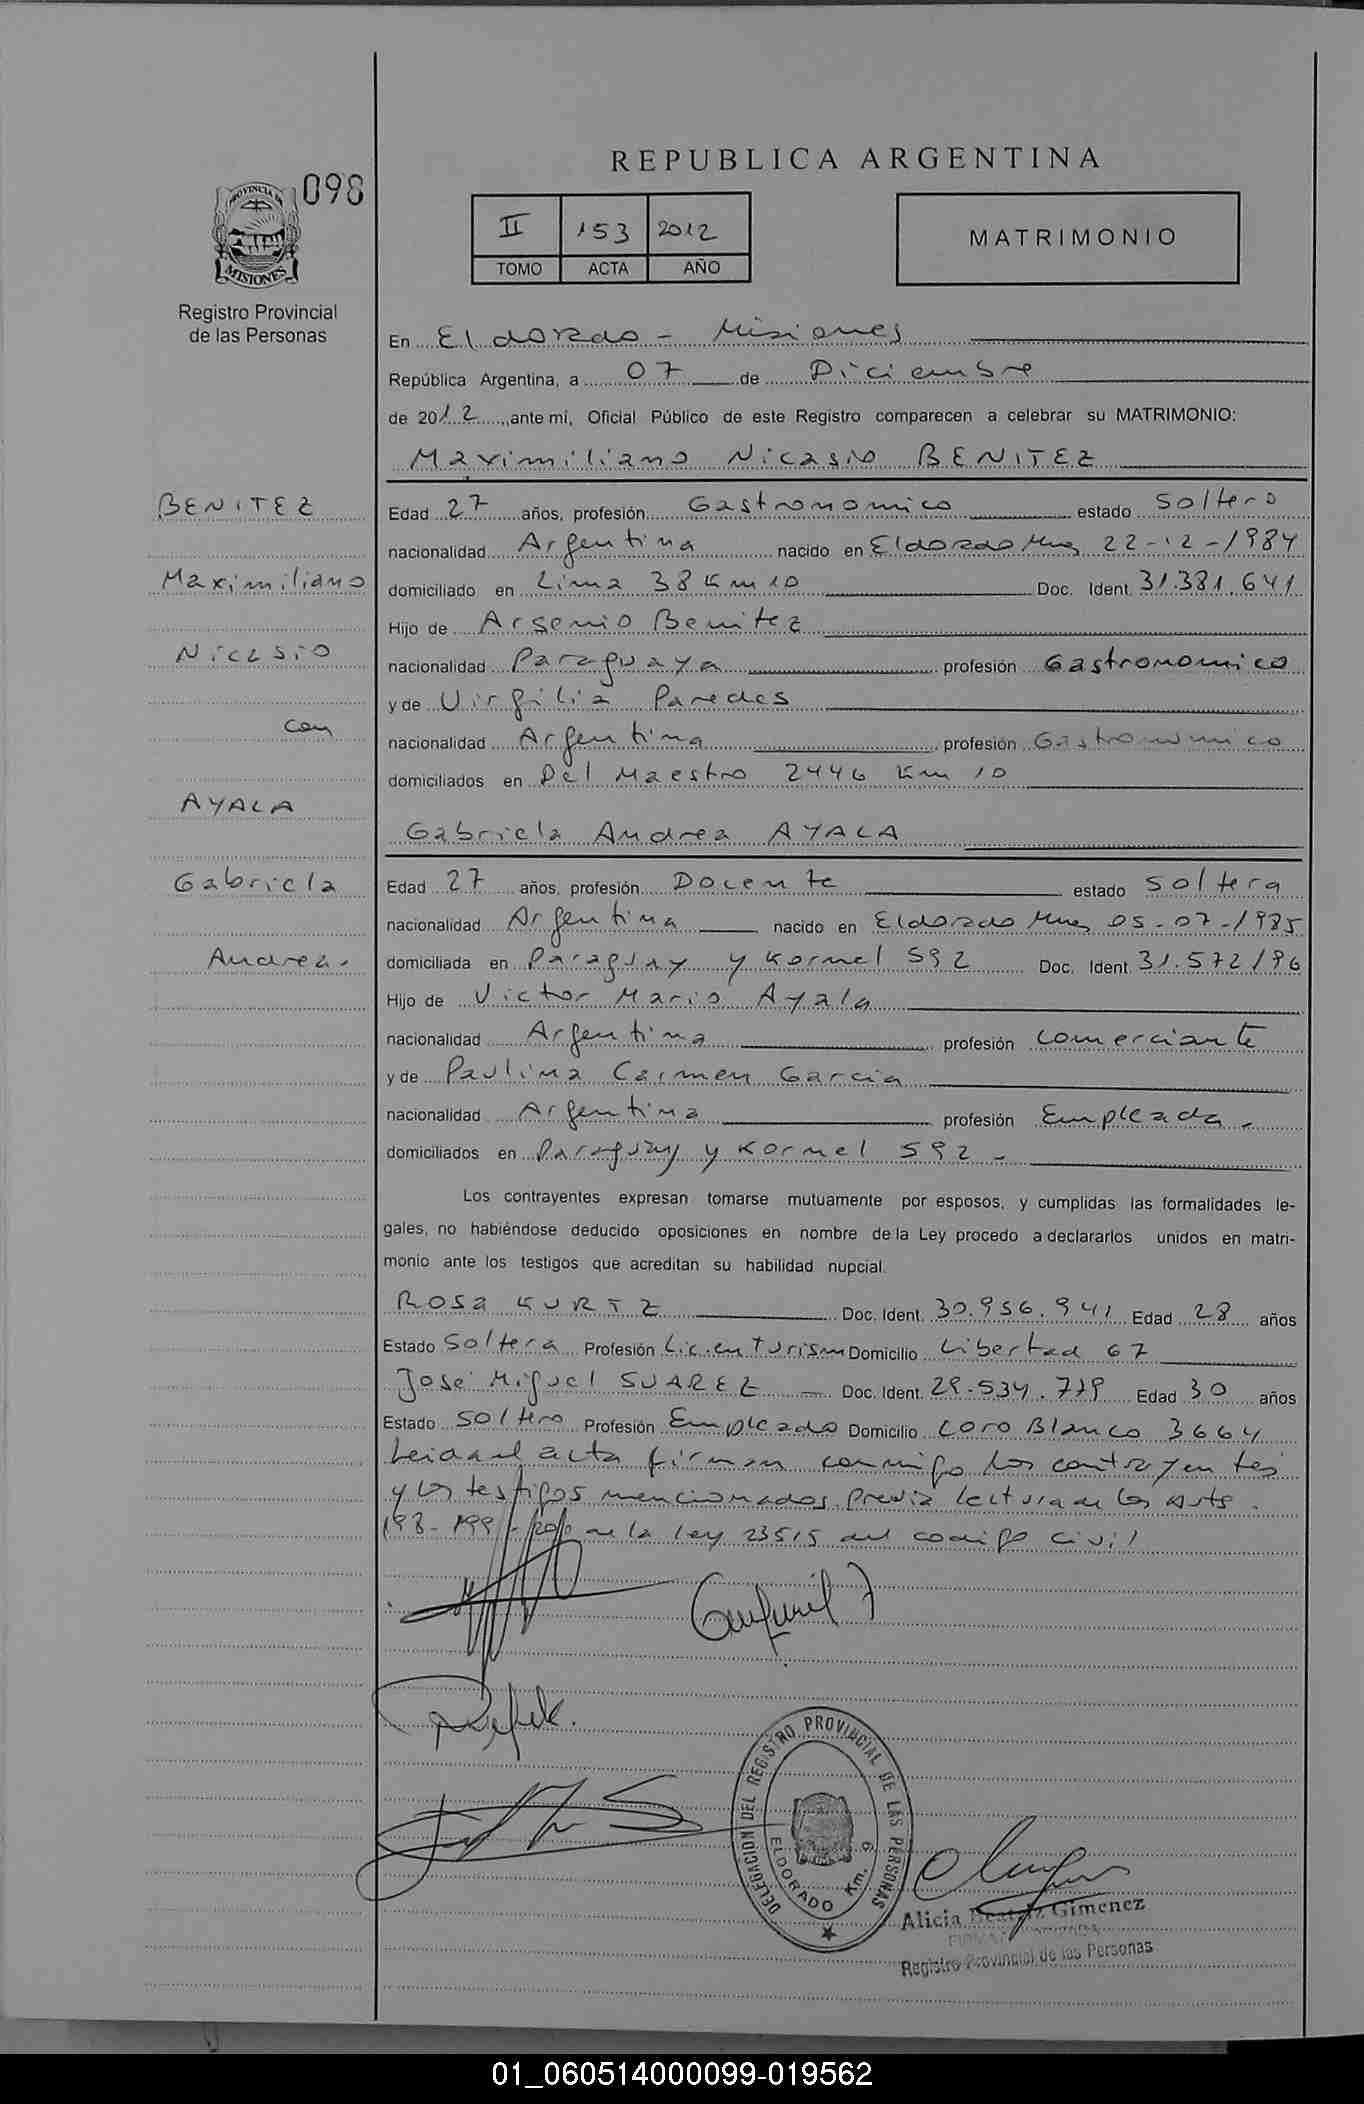 REPUBLICA ARGENTINA
098
PROVINCIA DE
MISIONES
Registro Provincial
de las Personas
II 153 2012
TOMO ACTA AÑO
MATRIMONIO
En Eldorado - Misiones
República Argentina, a 07 de Diciembre
de 2012, ante mí, Oficial Público de este Registro comparecen a celebrar su MATRIMONIO:
Maximiliano Nicasio BENITEZ
BENITEZ
Maximiliano
Nicasio
con
AYALA
Gabriela
Andrea.
Edad 27 años, profesión Gastronomico estado Soltero
nacionalidad Argentina nacido en Eldorado Mnes 22-12-1984
domiciliado en Lima 38 Km 10 Doc. Ident. 31.381.641
Hijo de Arsenio Benitez
nacionalidad Paraguaya profesión Gastronomico
y de Virgilia Paredes
nacionalidad Argentina profesión Gastronomico
domiciliados en Del Maestro 2446 Km 10
Gabriela Andrea AYALA
Edad 27 años, profesión Docente estado soltera
nacionalidad Argentina nacido en Eldorado Mnes 05-07-1985
domiciliada en Paraguay y Kormel 592 Doc. Ident. 31.572196
Hijo de Victor Mario Ayala
nacionalidad Argentina profesión comerciante
y de Paulina Carmen Garcia
nacionalidad Argentina profesión Empleada.
domiciliados en Paraguay y Kormel 592 -
Los contrayentes expresan tomarse mutuamente por esposos, y cumplidas las formalidades le-
gales, no habiéndose deducido oposiciones en nombre de la Ley procedo a declararlos unidos en matri-
monio ante los testigos que acreditan su habilidad nupcial.
ROSA KURTZ Doc. Ident. 30.956.941 Edad 28 años
Estado Soltera Profesión Lic. en Turism Domicilio Libertad 67
José Miguel SUAREZ Doc. Ident. 29.534.779 Edad 30 años
Estado soltero Profesión Empleado Domicilio Loro Blanco 3664
Leida el acta firman conmigo los contrayentes
y los testigos mencionados previa lectura de los arts.
198-199-200 de la ley 23515 del codigo civil
DELEGACION DEL REGISTRO PROVINCIAL DE LAS PERSONAS
ELDORADO Km. 9
Alicia Beatriz Gimenez
Registro Provincial de las Personas
01_060514000099-019562